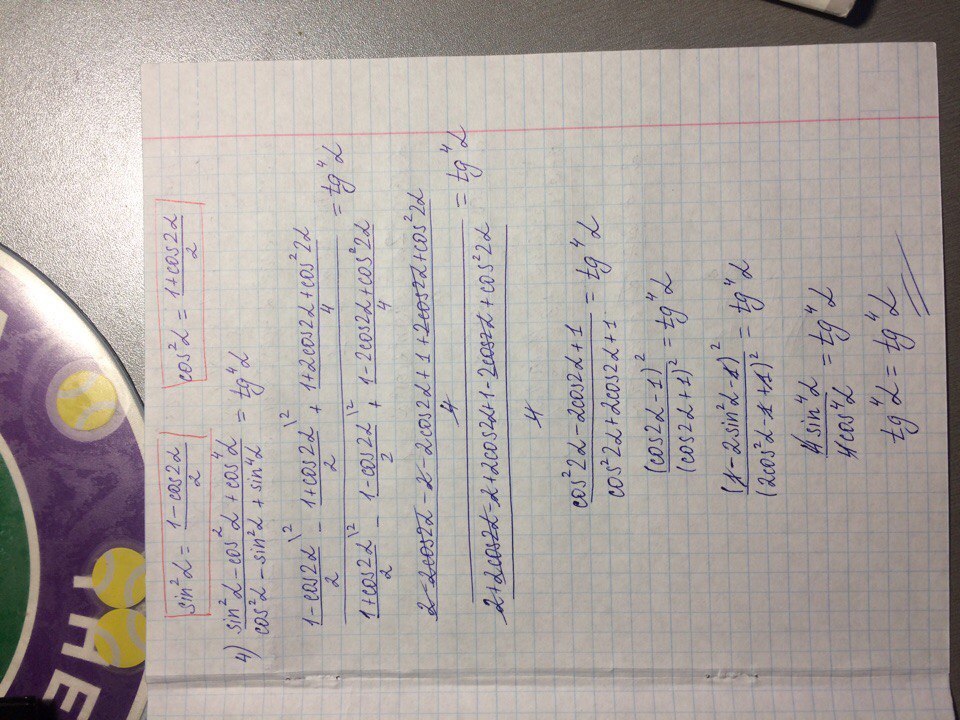 sin²α = (1-cos2α)/2   cos²α = (1+cos2α)/2
4) (sin²α - cos²α + cos⁴α)/(cos²α - sin²α + sin⁴α) = tg⁴α
((1-cos2α)/2\2 - (1+cos2α)/2\2 + (1+2cos2α+cos²2α)/4)/((1+cos2α)/2\2 - (1-cos2α)/2\2 + (1-2cos2α+cos²2α)/4) = tg⁴α
((2-2cos2α-2-2cos2α+1+2cos2α+cos²2α)/4)/((2+2cos2α-2+2cos2α+1-2cos2α+cos²2α)/4) = tg⁴α
(cos²2α-2cos2α+1)/(cos²2α+2cos2α+1) = tg⁴α
(cos2α-1)²/(cos2α+1)² = tg⁴α
(1-2sin²α-1)²/(2cos²α-1+1)² = tg⁴α
4sin⁴α/4cos⁴α = tg⁴α
tg⁴α = tg⁴α
THE